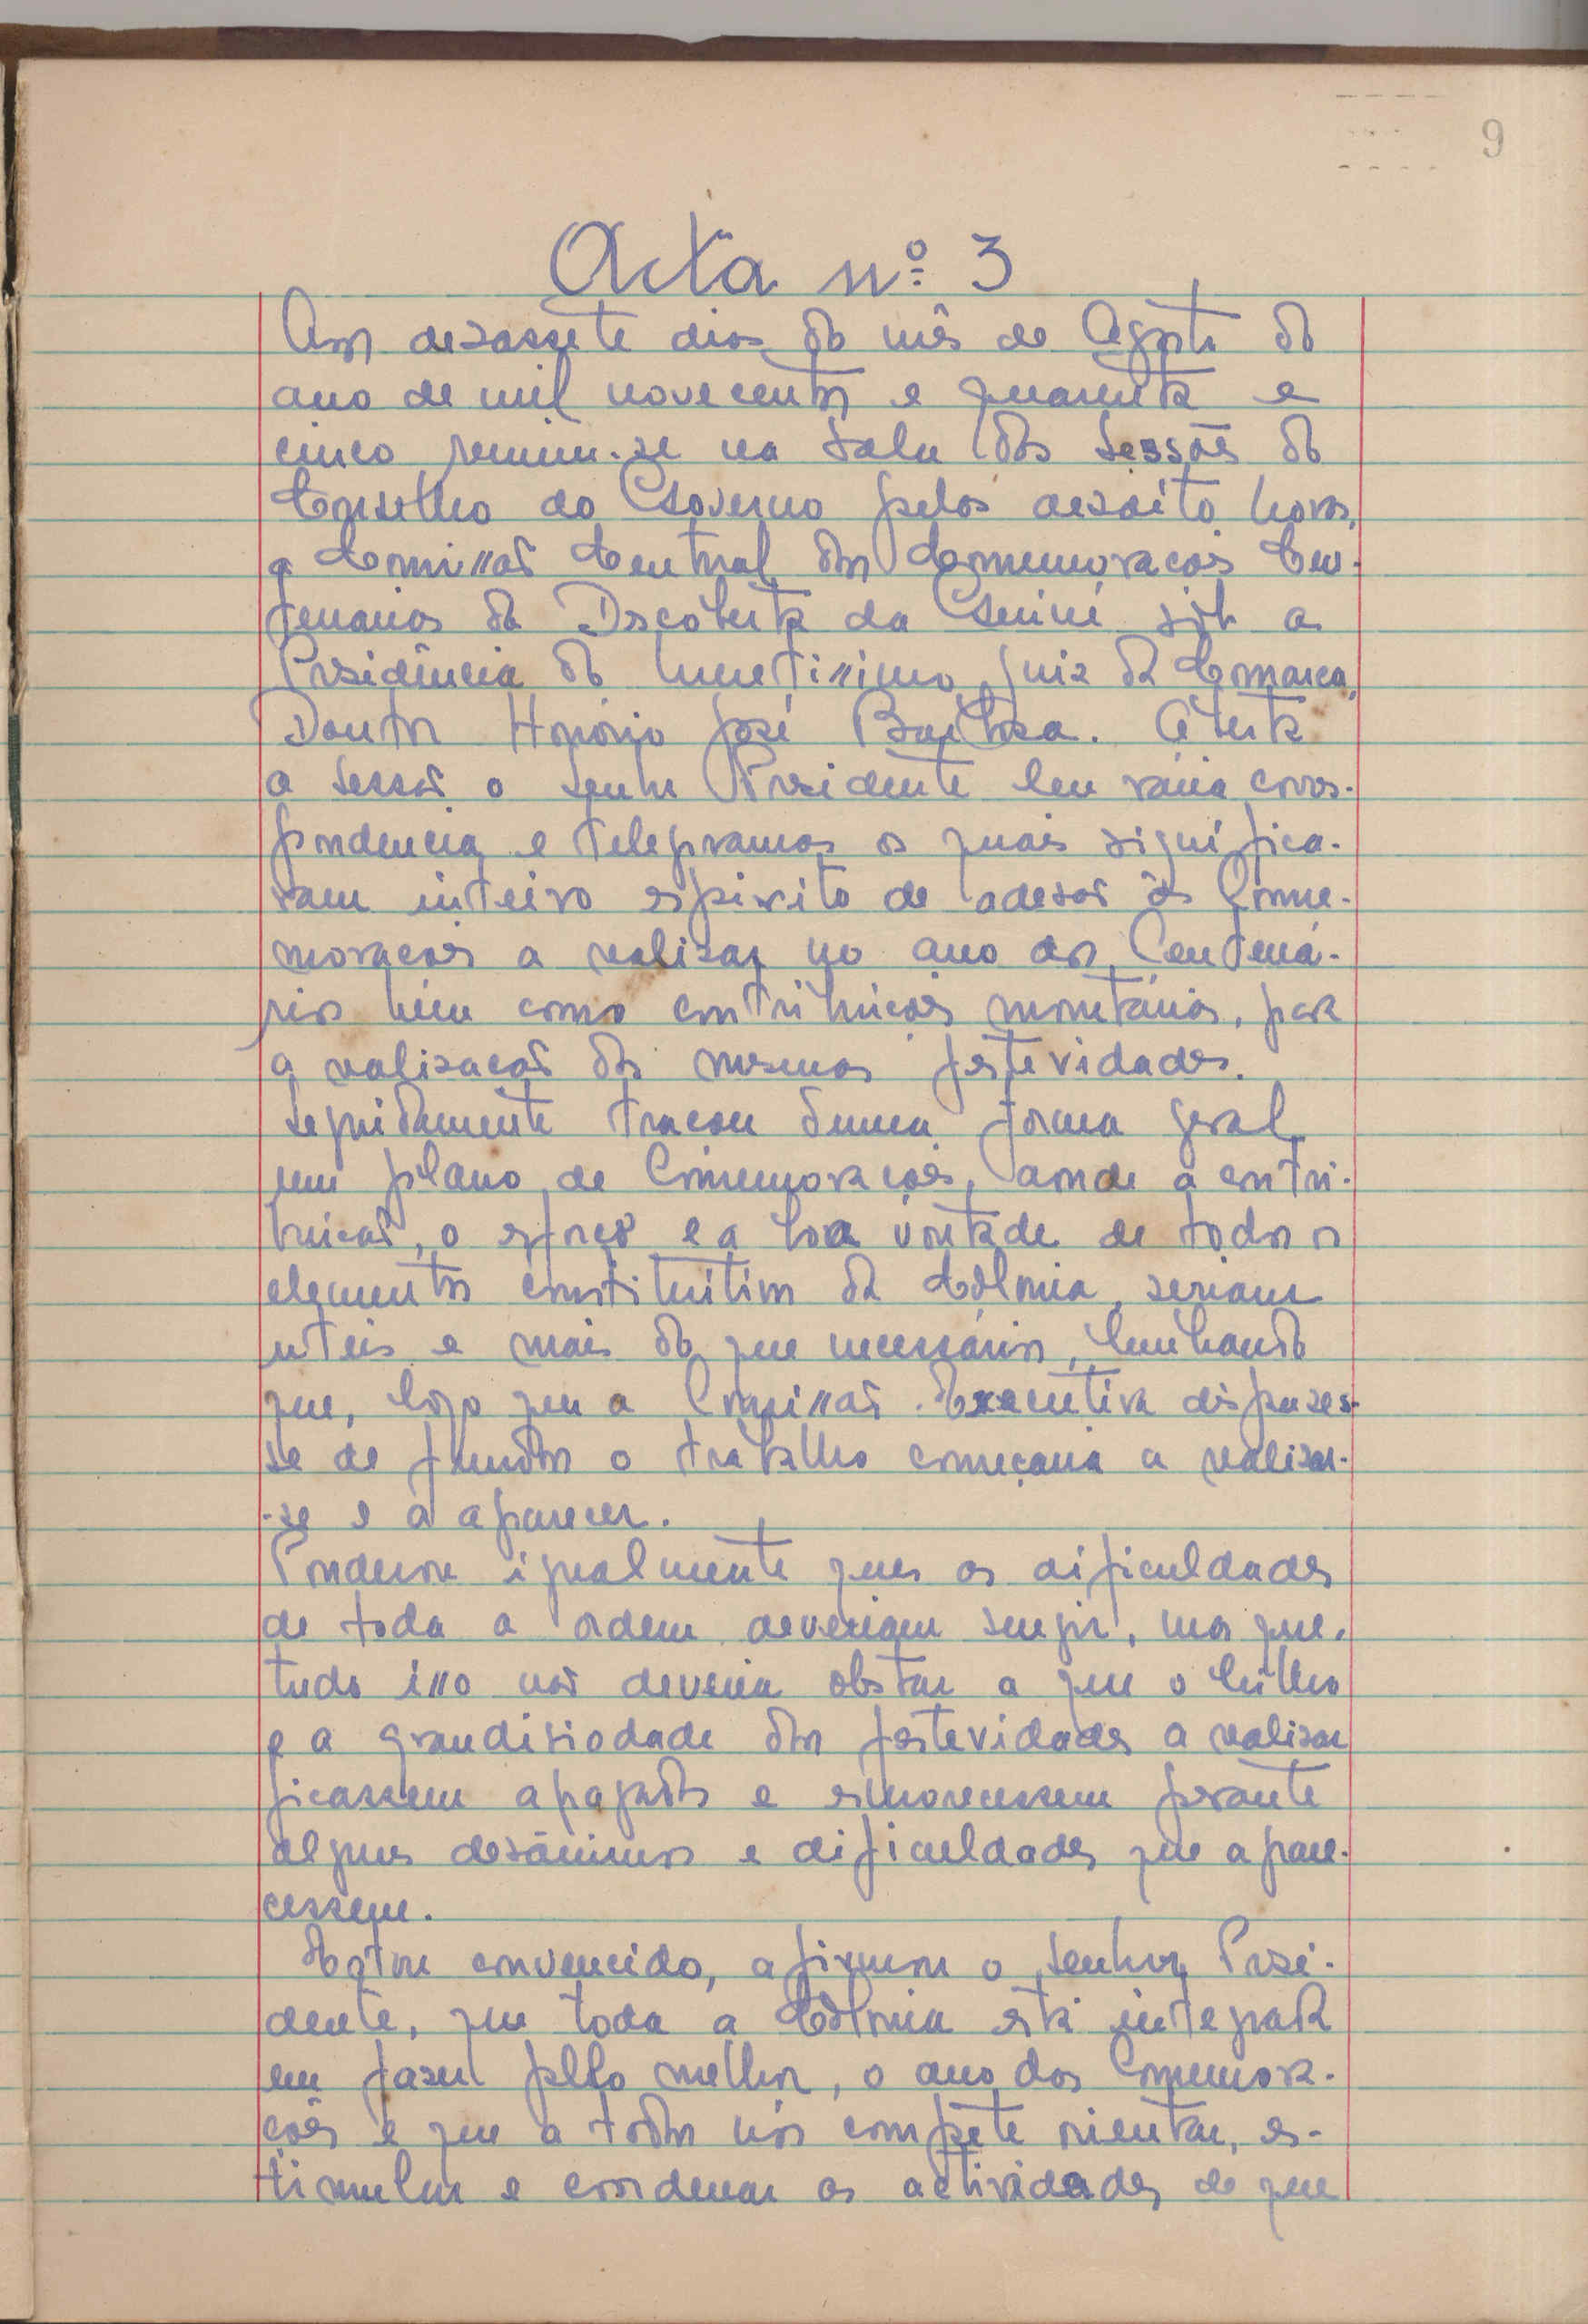 9
Acta nº 3
Aos dezassete dias do mês de Agosto do
ano de mil novecentos e quarenta e
cinco reuniu-se na Sala das Sessões do
Conselho do Governo pelas dezoito horas,
a Comissão Central das Comemorações Cen-
tenarias da Descoberta da Guiné sob a
Presidência do Meretissimo Juiz da Comarca,
Doutor Honório José Barbosa. Aberta
a Sessão o Senhor Presidente leu vária corres-
pondencia e telegramas os quais significa-
vam inteiro espirito de adesão ás Come-
morações a realizar no ano dos Centená-
rios bem como contribuições monetárias, para
a realização das mesmas festevidades.
Seguidamente traçou duma forma geral
um plano de Comemorações, aonde a contri-
buição, o esforço e a boa vontade de todos os
elementos constituitivos da Colónia, seriam
uteis e mais do que necessários, lembrando
que, logo que a Comissão Executiva dispuses-
se de fundos o trabalho começaria a realizar-
-se e a aparecer.
Ponderou igualmente que as dificuldades
de toda a ordem deveriam surgir, mas que,
tudo isso não deveria obstar a que o brilho
e a grandisiodade das festevidades a realizar
ficassem apagados e esmorecessem perante
alguns desânimos e dificuldades que apare-
cessem.
Estou convencido, afirmou o Senhor Presi-
dente, que toda a Colónia está integrada
em fazer pelo melhor, o ano das Comemora-
ções e que a todos nós compete orientar, es-
timular e coordenar as actividades de que